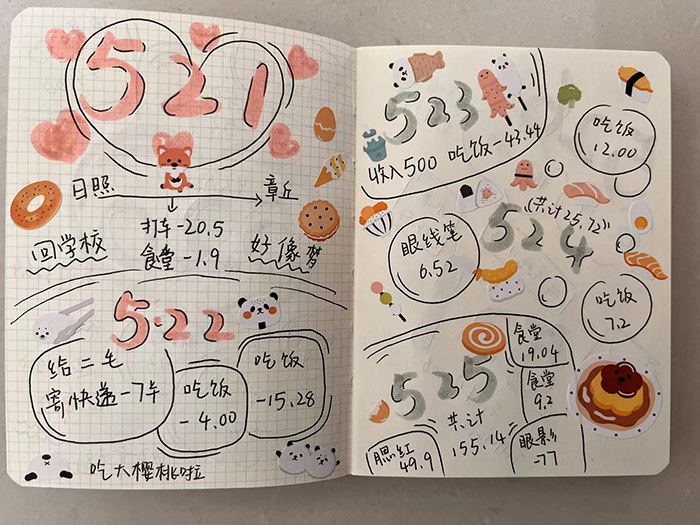 521
日照
章丘
打车-20.5
回学校
食堂-1.9
好像梦
5·22
给二毛
寄快递-7年
吃饭
-4.00
吃饭
-15.28
吃大樱桃啦
523
收入500 吃饭-43.44
吃饭
12.00
眼线笔
6.52
(共计25.72)
524
吃饭
7.2
525
共计
155.14
食堂
19.04
食堂
9.2
眼影
-77
腮红
49.9